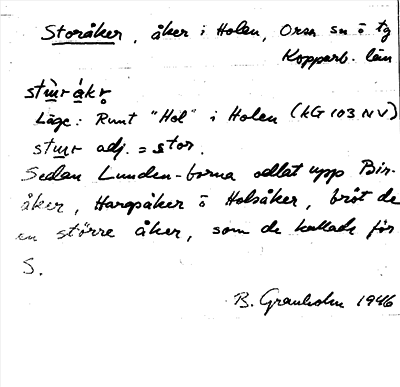 Storåker, åker i Holen, Orsa sn o tg
Kopparb. län
stùr ákṛ
Läge: Runt "Hol" i Holen (KG 103 NV)
stur adj. = stor.
Sedan Lunden-borna odlat upp Bir-
åker, Hargsåker o Holsåker, bröt de
en större åker, som de kallade för
S.
B. Granholm 1946